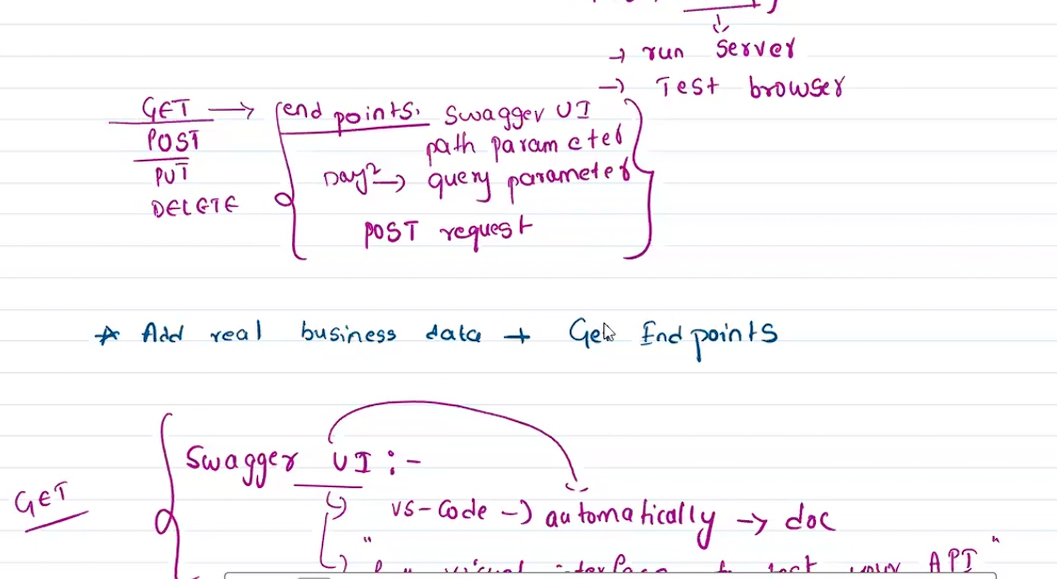 → run Server
→ Test browser
GET → end points: Swagger UI
POST path parameter
PUT Day2 → query parameter
DELETE
POST request
☆ Add real business data + Get Endpoints
Swagger UI :-
GET
↳ VS-Code → automatically → doc
↳ " visual interface to test your API "